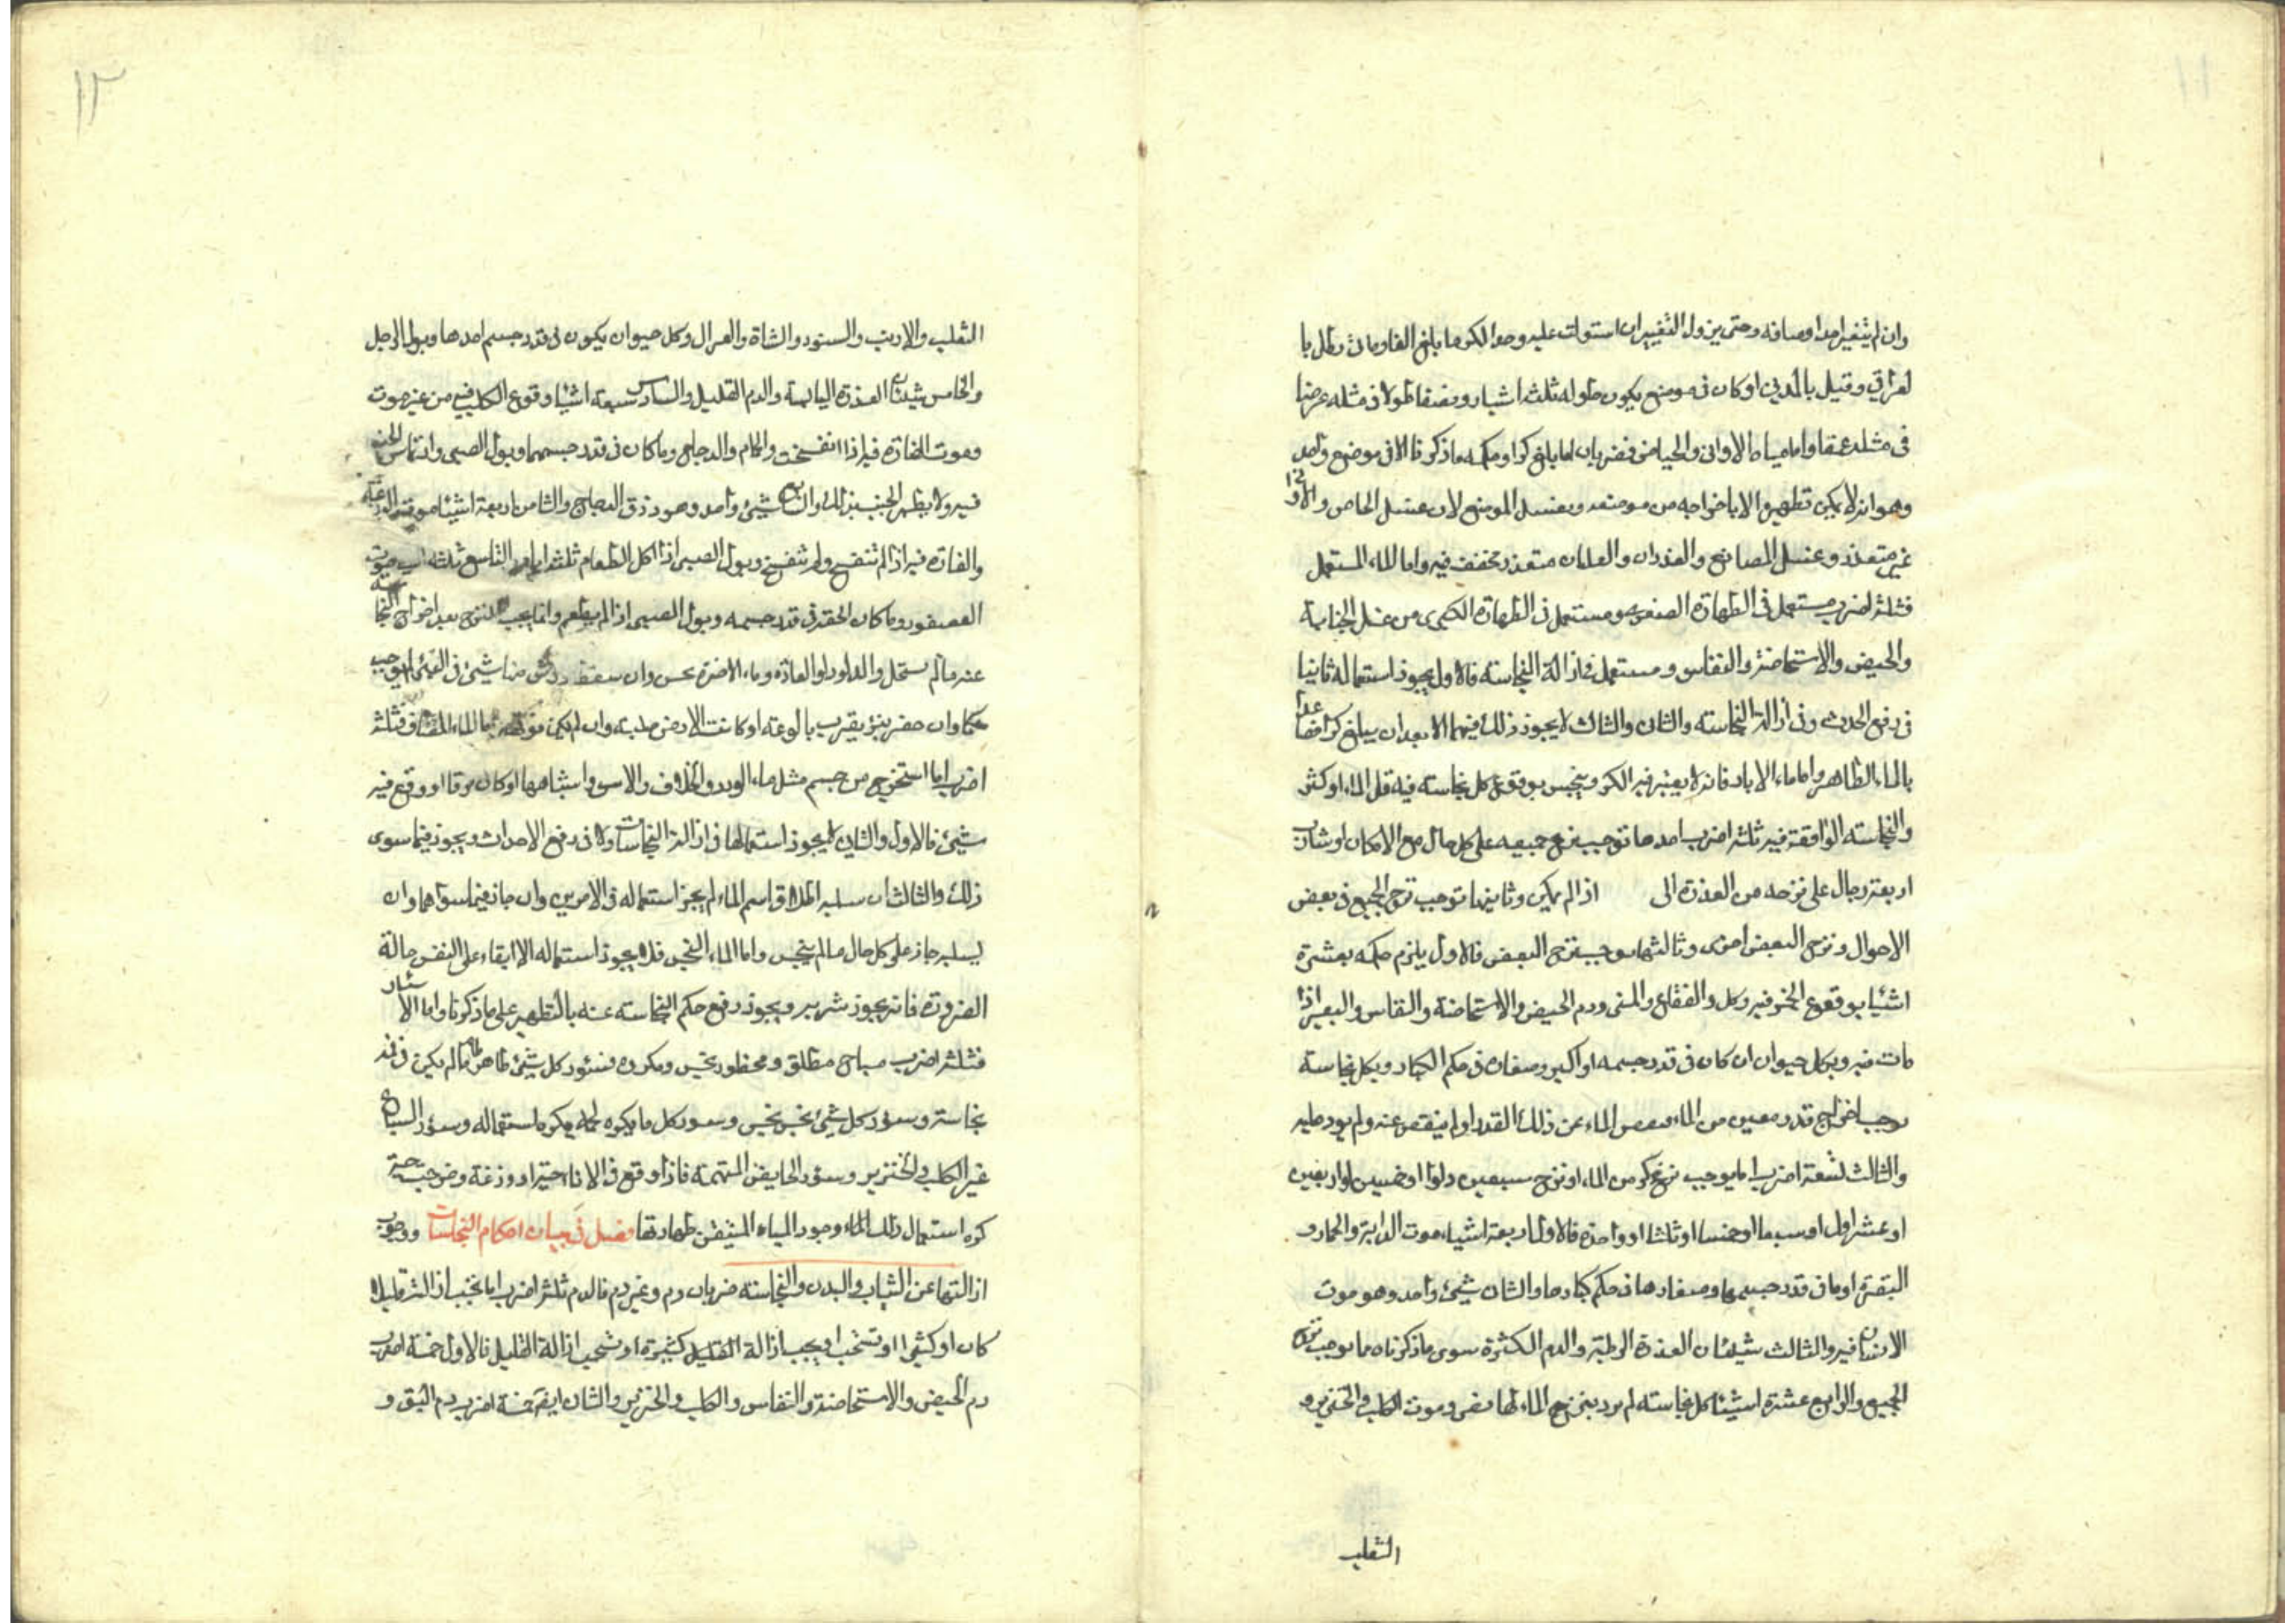 ١١
وان لم يتغير احد اوصافه وحتى يزول التغيير ان استولت عليه وحد الكر ما بلغ الفا ومائتى رطل با
لعراقي وقيل بالمدني او كان في موضع يكون طوله ثلثه اشبار ونصفا طولا في مثله عرضا
في مثله عمقا واما مياه الاواني والحياض فضربان اما بلغ كرا وحكمه ما ذكرنا الا في موضع واحد
وهو انه لا يمكن تطهيرها الا باخراجه من موضعه وبغسل الموضع لان غسل الحياض والاواني
غير متعذر وغسل المصانع والغدران والغلمان متعذر فخفف فيه واما الماء المستعمل
فثلثة اضرب مستعمل في الطهارة الصغرى ومستعمل في الطهارة الكبرى من غسل الجنابة
والحيض والاستحاضة والنفاس ومستعمل في ازالة النجاسته فالاول يجوز استعماله ثانيا
في رفع الحدث وفي ازالة النجاسته والثاني والثالث لا يجوز ذلك فيهما الا بعد ان يبلغ كرا فصاعدا
بالماء الطاهر واما ماء الابار فانه لا يعتبر فيه الكر وينجس بوقوع كل نجاسته فيه قل الماء او كثر
والنجاسته الواقعة فيه ثلثة اضرب احدها توجب نزح جميعه على كل حال مع الامكان او تناوب
اربعة رجال على نزحه من الغدوة الى اذا لم يمكن وثانيها توجب نزح الجميع في بعض
الاحوال ونزح البعض اخرى وثالثها يوجب نزح البعض فالاول يلزم حكمه بعشرة
اشيا بوقوع الخمر فيه وكل والفقاع والمنى ودم الحيض والاستحاضة والنفاس والبعير اذا
مات فيه وبكل حيوان ان كان في قدر جسمه او اكبر وصغاره في حكم الكبار وبكل نجاسته
يوجب اخراج قدر معين من الماء ونقص الماء عن ذلك القدر او لم ينقص عنه ولم يزد عليه
والثالث تسعة اضرب ما يوجب نزح كر من الماء او نزح سبعين دلوا او خمسين او اربعين
او عشرا ول او سبعا او خمسا او ثلثا او واحدة فالاول اربعة اشياء موت الدابة والحمار و
البقرة او ما في قدر جسمها وصغارها في حكم كبارها والثاني شيئ واحد وهو موت
الانسان فيه والثالث شيئان العذرة الرطبة والدم الكثرة سوى ما ذكرناه ما يوجب نزح
الجميع والرابع عشرة اشيئا كل نجاسته لم يرد بنزح الماء لها نص وموت الكلب والخنزير و
الثعلب
١٢
الثعلب والارنب والسنور والشاة والغزال وكل حيوان يكون في قدر جسم احدها وبول الرجل
والخامس شيئان العذرة اليابسة والدم القليل والسادس سبعة اشيا وقوع الكلب فيه من غير موت
وموت الفارة فيه اذا انفسخت والحمام والدجاج وما كان في قدر جسمهما وبول الصبى وارتماس الجنب
فيه ولا يطهر الجنب بذلك والسابع شيئ واحد وهو ذرق الدجاج والثامن اربعة اشيئا موت
والفارة فيه اذا لم تنفسخ ولم تنتفخ وبول الصبى اذا اكل الطعام ثلثة ايام والتاسع ثلثه موت
العصفور وما كان في قدر جسمه وبول الصبى اذا لم يطعم وانما يجب النزح بعد اخراج النجاسته
عنه ما لم يستحل والدلو دلو العادة وماء الاخرة نجس وان سقط منها شيئ في البئر لم يوجب
حكما وان حفر بئر بقرب بالوعته او كانت الارض صلبه وان لم يكن فوقها واما الماء المضاف فثلثة
اضرب ما استخرج من جسم مثل ماء الورد والخلاف والاس واشباهها او كان مرقا او وقع فيه
شيئ فالاول والثاني لا يجوز استعمالها في ازالة النجاسات ولا في رفع الاحداث ويجوز فيما سوى
ذلك والثالث ان سلبه اطلاق اسم الماء لم يجز استعماله في الامرين وان جاز فيما سواهما وان
يسلبه جاز على كل حال ما لم ينجس واما الماء النجس فلا يجوز استعماله الا ابقاء على النفس حالة
الضرورة فانه يجوز شربه ويجوز رفع حكم النجاسته عنه بالتطهير على ما ذكرنا واما الاسئار
فثلثة اضرب مباح مطلق ومحظور نجس ومكروه فسئور كل شيئ طاهر طاهر ما لم يكن في فيه
نجاسته وسؤر كل شيئ نجس نجس وسور كل ما يكره لحمه يكره استعماله وسؤر السباع
غير الكلب والخنزير وسؤر الحايض المتهمة فاذا وقع في الاناء حية او وزغة وخرجت حية
كره استعمال ذلك الماء وجود المياه المتيقن طهارتها فصل في بيان احكام النجاسات ووجوب
ازالتها عن الثياب والبدن والنجاسته ضربان دم وغير دم فالدم ثلثة اضرب ما يجب ازالته قليلا
كان او كثيرا او تستحب او يجب ازالة القليل كثيره او تستحب ازالة القليل فالاول خمسة اضرب
دم الحيض والاستحاضة والنفاس والكلب والخنزير والثاني ايضا خمسة اضرب دم البق و